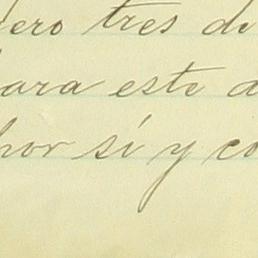 ero tres de
para este
por sí y co